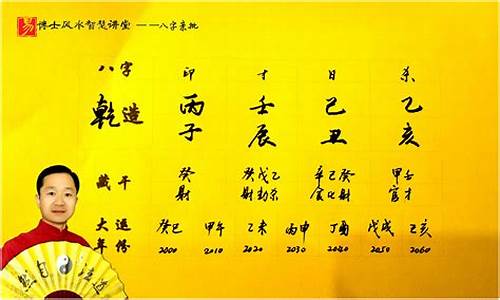 易 博士风水智慧讲堂 ——八字亲批
八字 印 才 日 杀
乾造 丙 壬 己 乙
子 辰 丑 亥
藏干 癸 癸戊乙 辛己癸 甲壬
财 财劫杀 食比财 官才
大运 癸巳 甲午 乙未 丙申 丁酉 戊戌 己亥
年份 2000 2010 2020 2030 2040 2050 2060